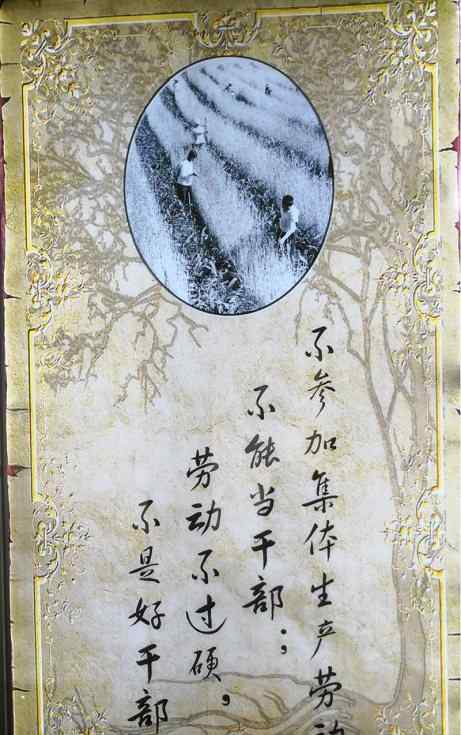 不参加集体生产劳动
不能当干部；
劳动不过硬，
不是好干部